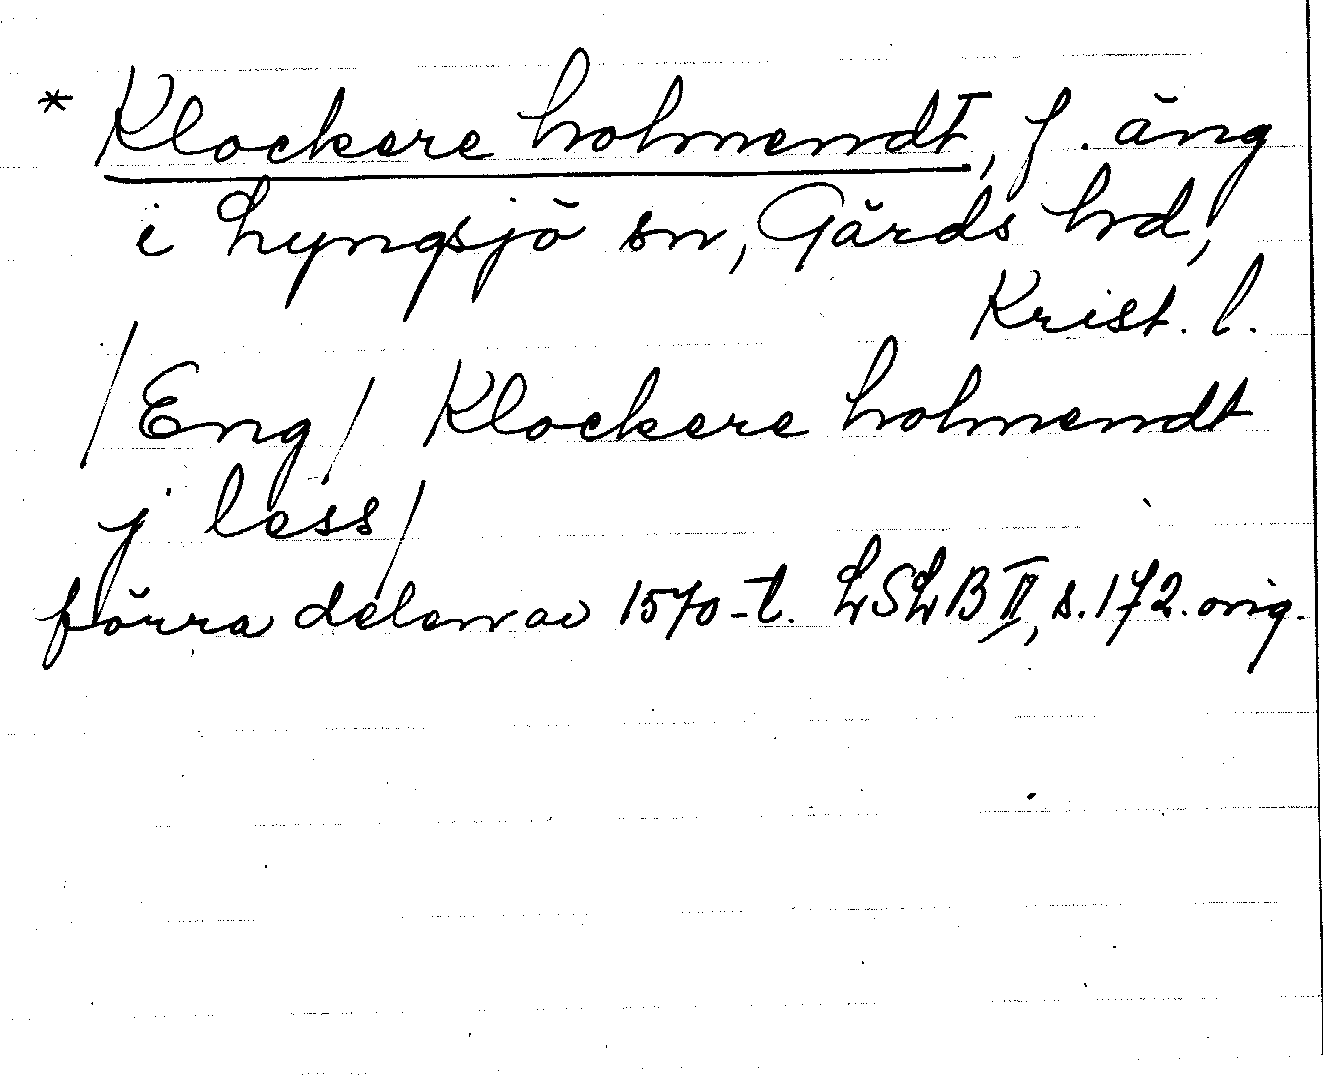 * Klockere holmendt, f. äng
i Lyngsjö sn, Gärds hd,
Krist. l.
/Eng/ Klockere holmendt
j less/
förra delen av 1570-t. LSLB II, s. 172. orig.